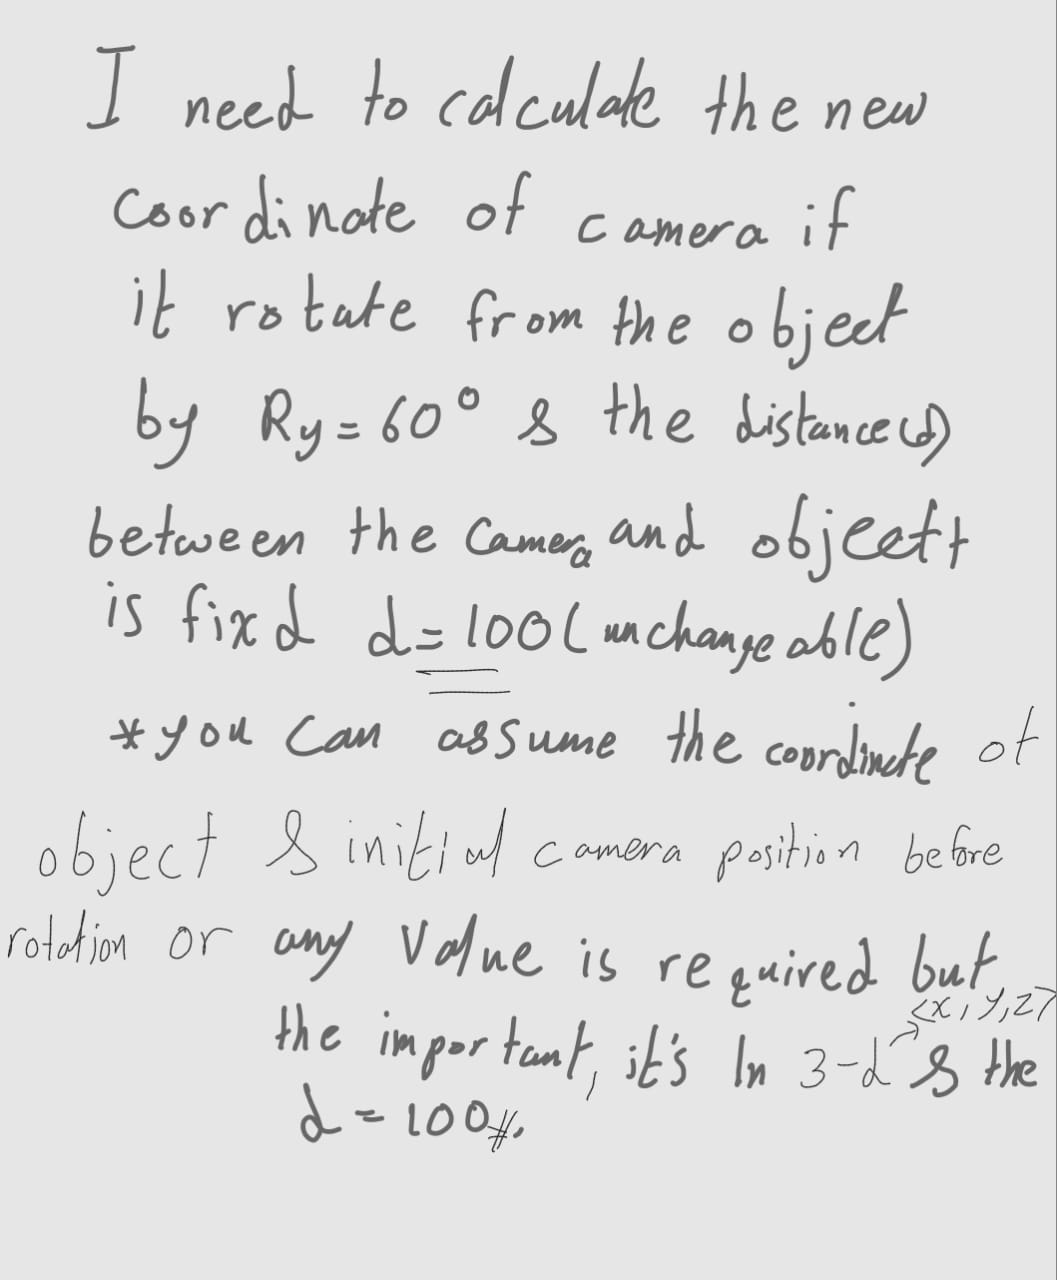 I need to calculate the new
coordinate of camera if
it rotate from the object
by Ry=60° & the distance(d)
between the camera and objectt
is fixd d=100(unchangeable)
*you can assume the coordinate of
object & initial camera position before
rotation or any value is required but
<x,y,z>
the important, it's In 3-d & the
d=100#.